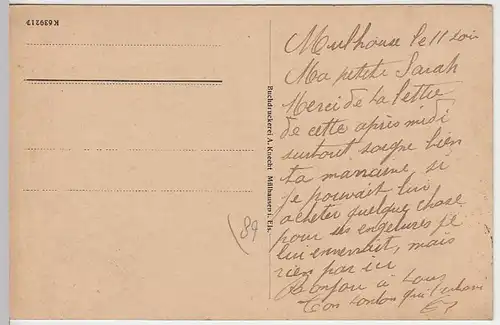 K639212
Mulhouse le 11 soir
Ma petite Sarah
Merci de ta lettre
de cette après midi
surtout soigne bien
ta marraine, si
je pouvait lui
acheter quelque chose
pour ses engelures je
lui enverrait, mais
rien par ici
Bonjou à tous
Ton tonton qui
(89
Buchdruckerei A. Knecht Mülhausen i. Els.